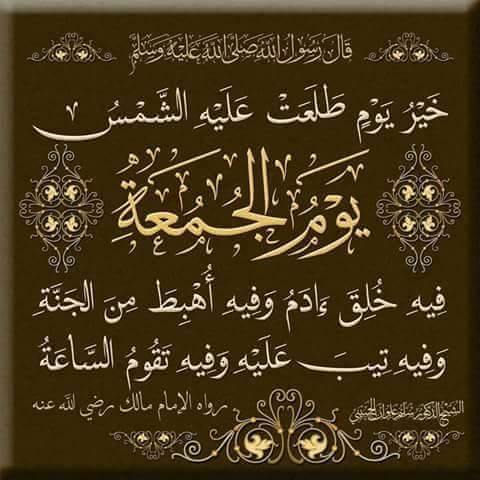 قَالَ رَسُولُ اللهِ صَلَّى اللهُ عَلَيْهِ وَسَلَّمَ
خَيْرُ يَوْمٍ طَلَعَتْ عَلَيْهِ الشَّمْسُ
يَوْمُ الْجُمُعَةِ
فِيهِ خُلِقَ ءَادَمُ وَفِيهِ أُهْبِطَ مِنَ الْجَنَّةِ
وَفِيهِ تِيبَ عَلَيْهِ وَفِيهِ تَقُومُ السَّاعَةُ
رواه الإمام مالك رضي الله عنه
الشيخ الدكتور سليم علوان الحسيني